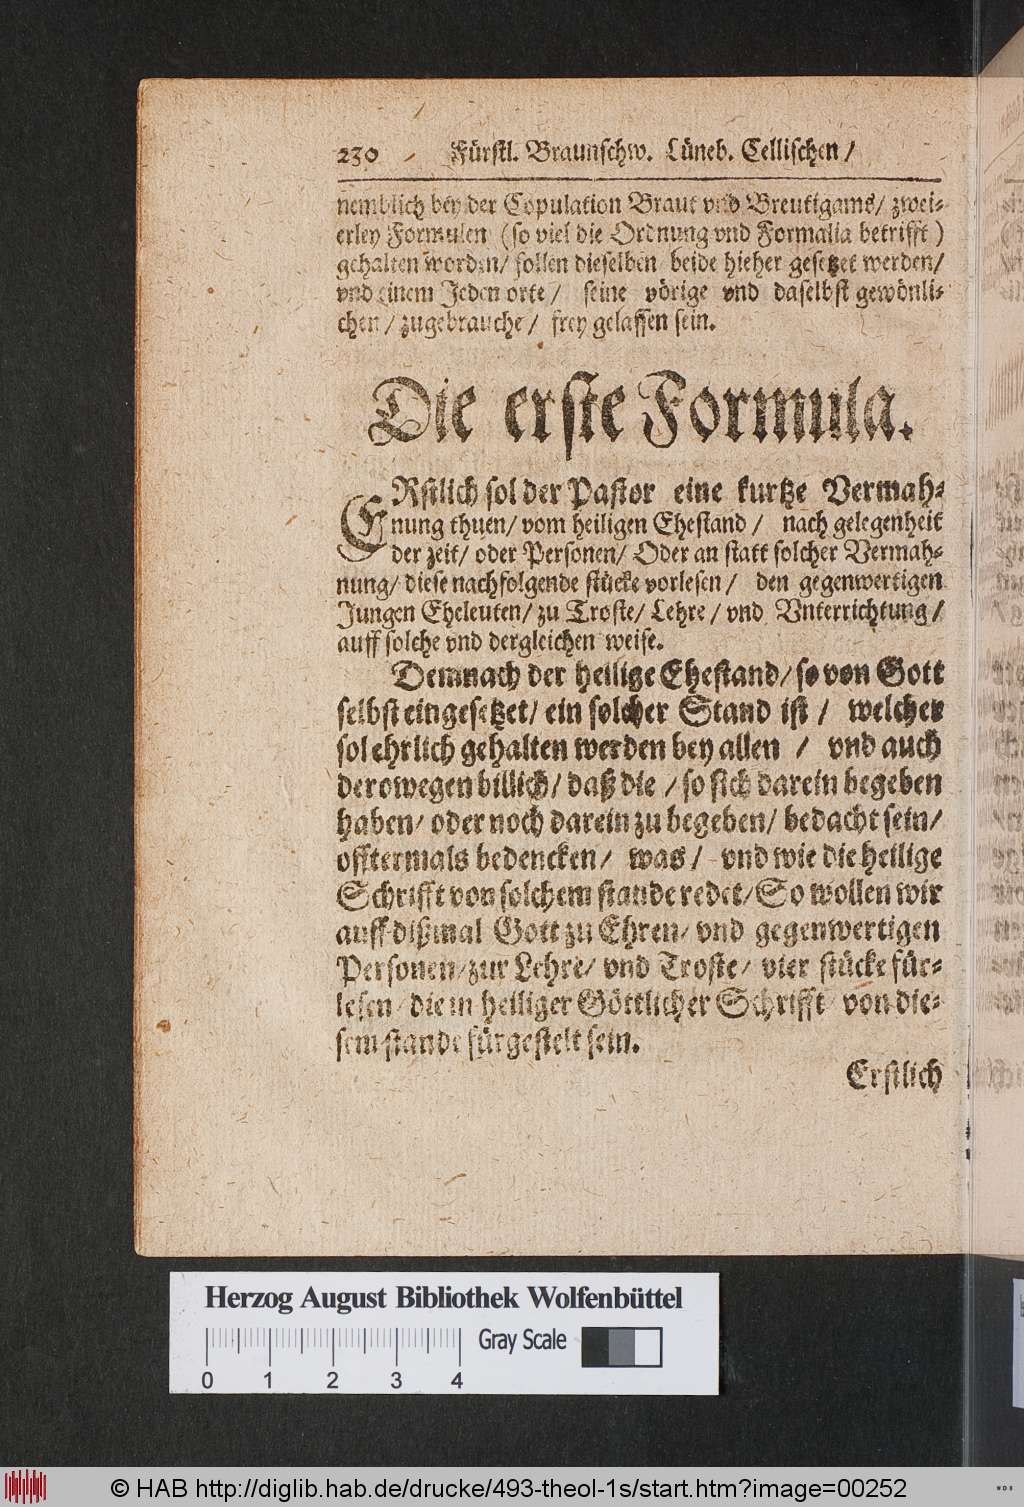 230 Fürstl. Braunschw. Lüneb. Cellischen /
nemblich bey der Copulation Braut vnd Breutigams/ zwei-
erley Formulen (so viel die Ordnung vnd Formalia betrifft)
gehalten worden/ sollen dieselben beide hieher gesetzet werden/
vnd einem Jeden orte / seine vörige vnd daselbst gewönli-
chen / zugebrauche / frey gelassen sein.
Die erste Formula.
ERstlich sol der Pastor eine kurtze Vermah-
nung thuen/ vom heiligen Ehestand / nach gelegenheit
der zeit/ oder Personen/ Oder an statt solcher Vermah-
nung/ diese nachfolgende stücke vorlesen / den gegenwertigen
Jungen Eheleuten/ zu Troste/ Lehre / vnd Vnterrichtung /
auff solche vnd dergleichen weise.
Demnach der heilige Ehestand/ so von Gott
selbst eingesetzet/ ein solcher Stand ist / welcher
sol ehrlich gehalten werden bey allen / vnd auch
derowegen billich/ daß die / so sich darein begeben
haben/ oder noch darein zu begeben/ bedacht sein/
offtermals bedencken/ was / vnd wie die heilige
Schrifft von solchem stande redet/ So wollen wir
auff dißmal Gott zu Ehren/ vnd gegenwertigen
Personen/ zur Lehre/ vnd Troste/ vier stücke für-
lesen/ die in heiliger Göttlicher Schrifft von die-
sem stande fürgestelt sein.
Erstlich
Herzog August Bibliothek Wolfenbüttel
Gray Scale
0 1 2 3 4
© HAB http://diglib.hab.de/drucke/493-theol-1s/start.htm?image=00252